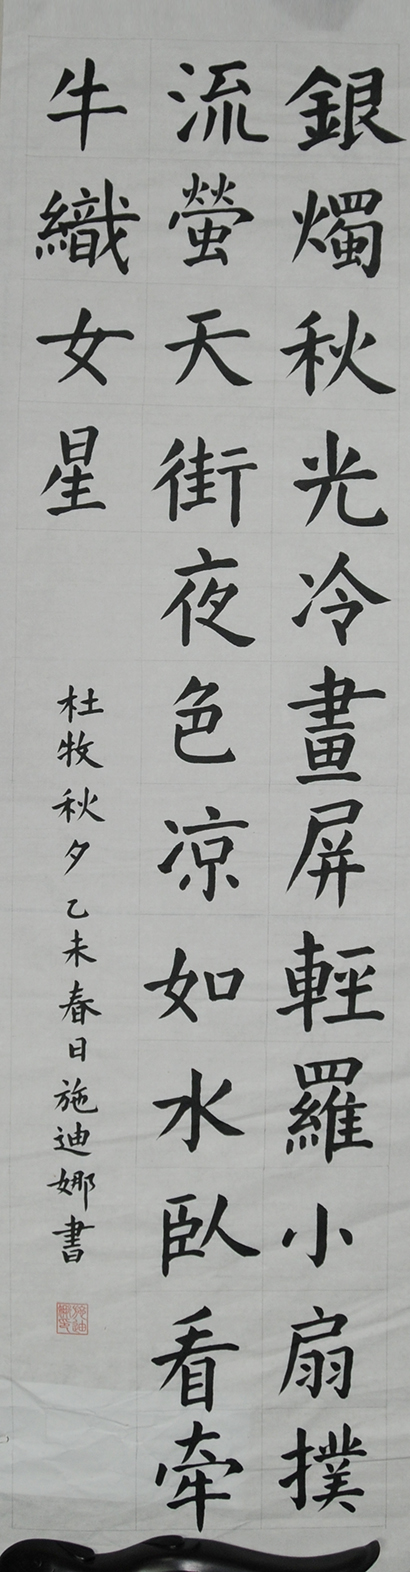 銀燭秋光冷畫屏輕羅小扇撲
流螢天街夜色凉如水臥看牽
牛織女星
杜牧秋夕乙未春日施迪娜書